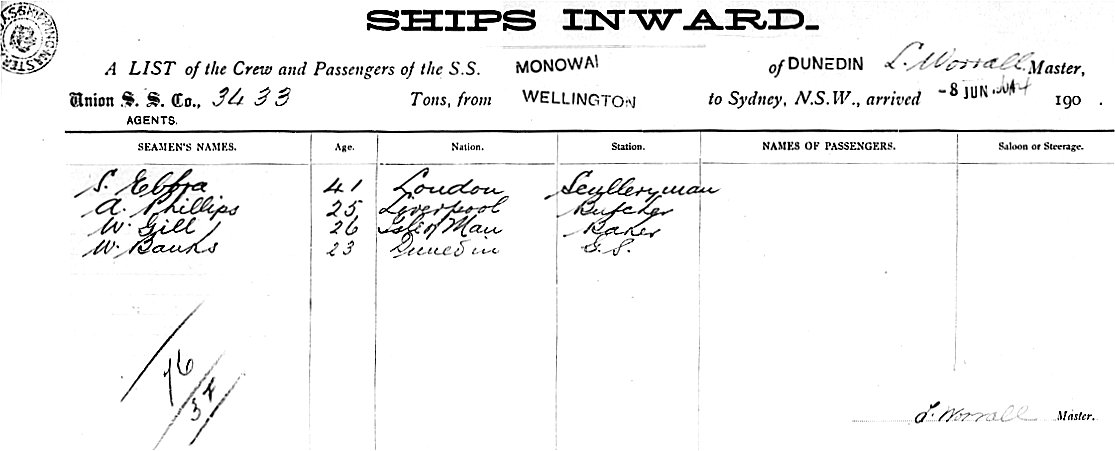 SHIPPING MASTER
SHIPS INWARD.
A LIST of the Crew and Passengers of the S.S. MONOWAI of DUNEDIN L. Worrall Master,
Union S. S. Co., 3433 Tons, from WELLINGTON to Sydney, N.S.W., arrived -8 JUN 190 .
AGENTS.
SEAMEN'S NAMES. Age. Nation. Station. NAMES OF PASSENGERS. Saloon or Steerage.
S. 41 London Scylleryman
A. Phillips 25 Liverpool Butcher
W. Gill 26 Isle of Man Baker
W. Banks 23 Dunedin G.S.
76
34
L. Worrall Master.